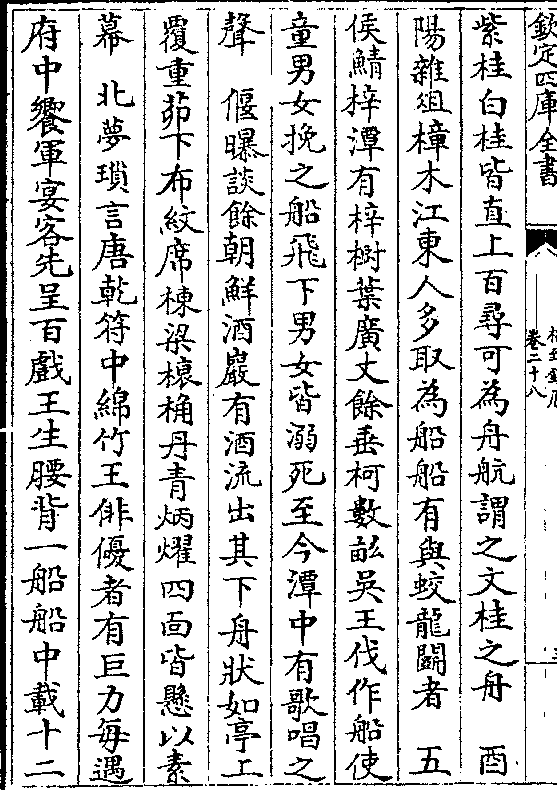 欽定四庫全書
卷二十八
紫桂白桂皆直上百尋可為舟航謂之文桂之舟　酉
陽雜俎樟木江東人多取為船船有與蛟龍鬬者　五
侯鯖梓潭有梓樹葉廣丈餘垂柯數畝吳王伐作船使
童男女挽之船飛下男女皆溺死至今潭中有歌唱之
聲　偃曝談餘朝鮮酒巖有酒流出其下舟狀如亭上
覆重茆下布紋席棟梁榱桷丹青炳燿四面皆懸以素
幕　北夢瑣言唐乾符中綿竹王俳優者有巨力每遇
府中饗軍宴客先呈百戲王生腰背一船船中載十二